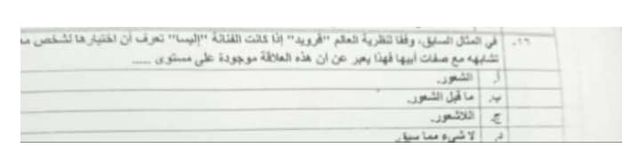 ٢٦. في المثال السابق، وفقا لنظرية العالم "فرويد" إذا كانت الفنانة "إليسا" تعرف أن اختيارها لشخص
تشابهه مع صفات أبيها فهذا يعبر عن ان هذه العلاقة موجودة على مستوى .....
أ. الشعور.
ب. ما قبل الشعور.
ج. اللاشعور.
د. لا شيء مما سبق.